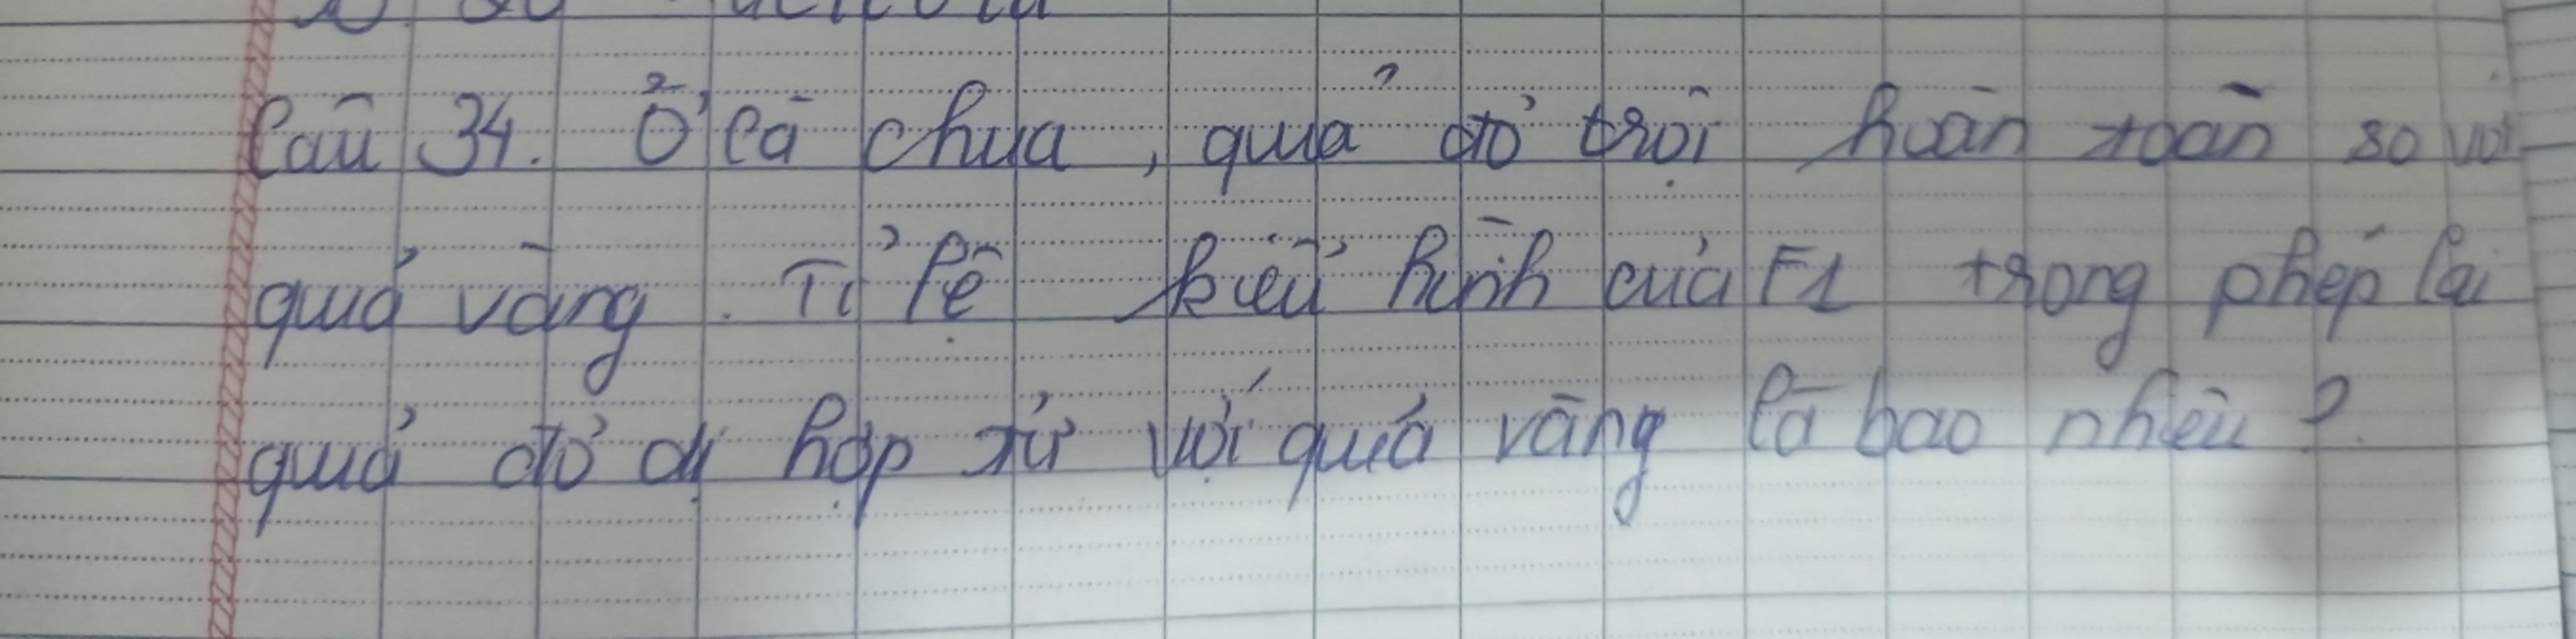 Câu 34. Ở cà chua, quả đỏ trội hoàn toàn so với
quả vàng. Tỉ lệ kiểu hình của F1 trong phép lai
quả đỏ dị hợp tử với quả vàng là bao nhiêu?